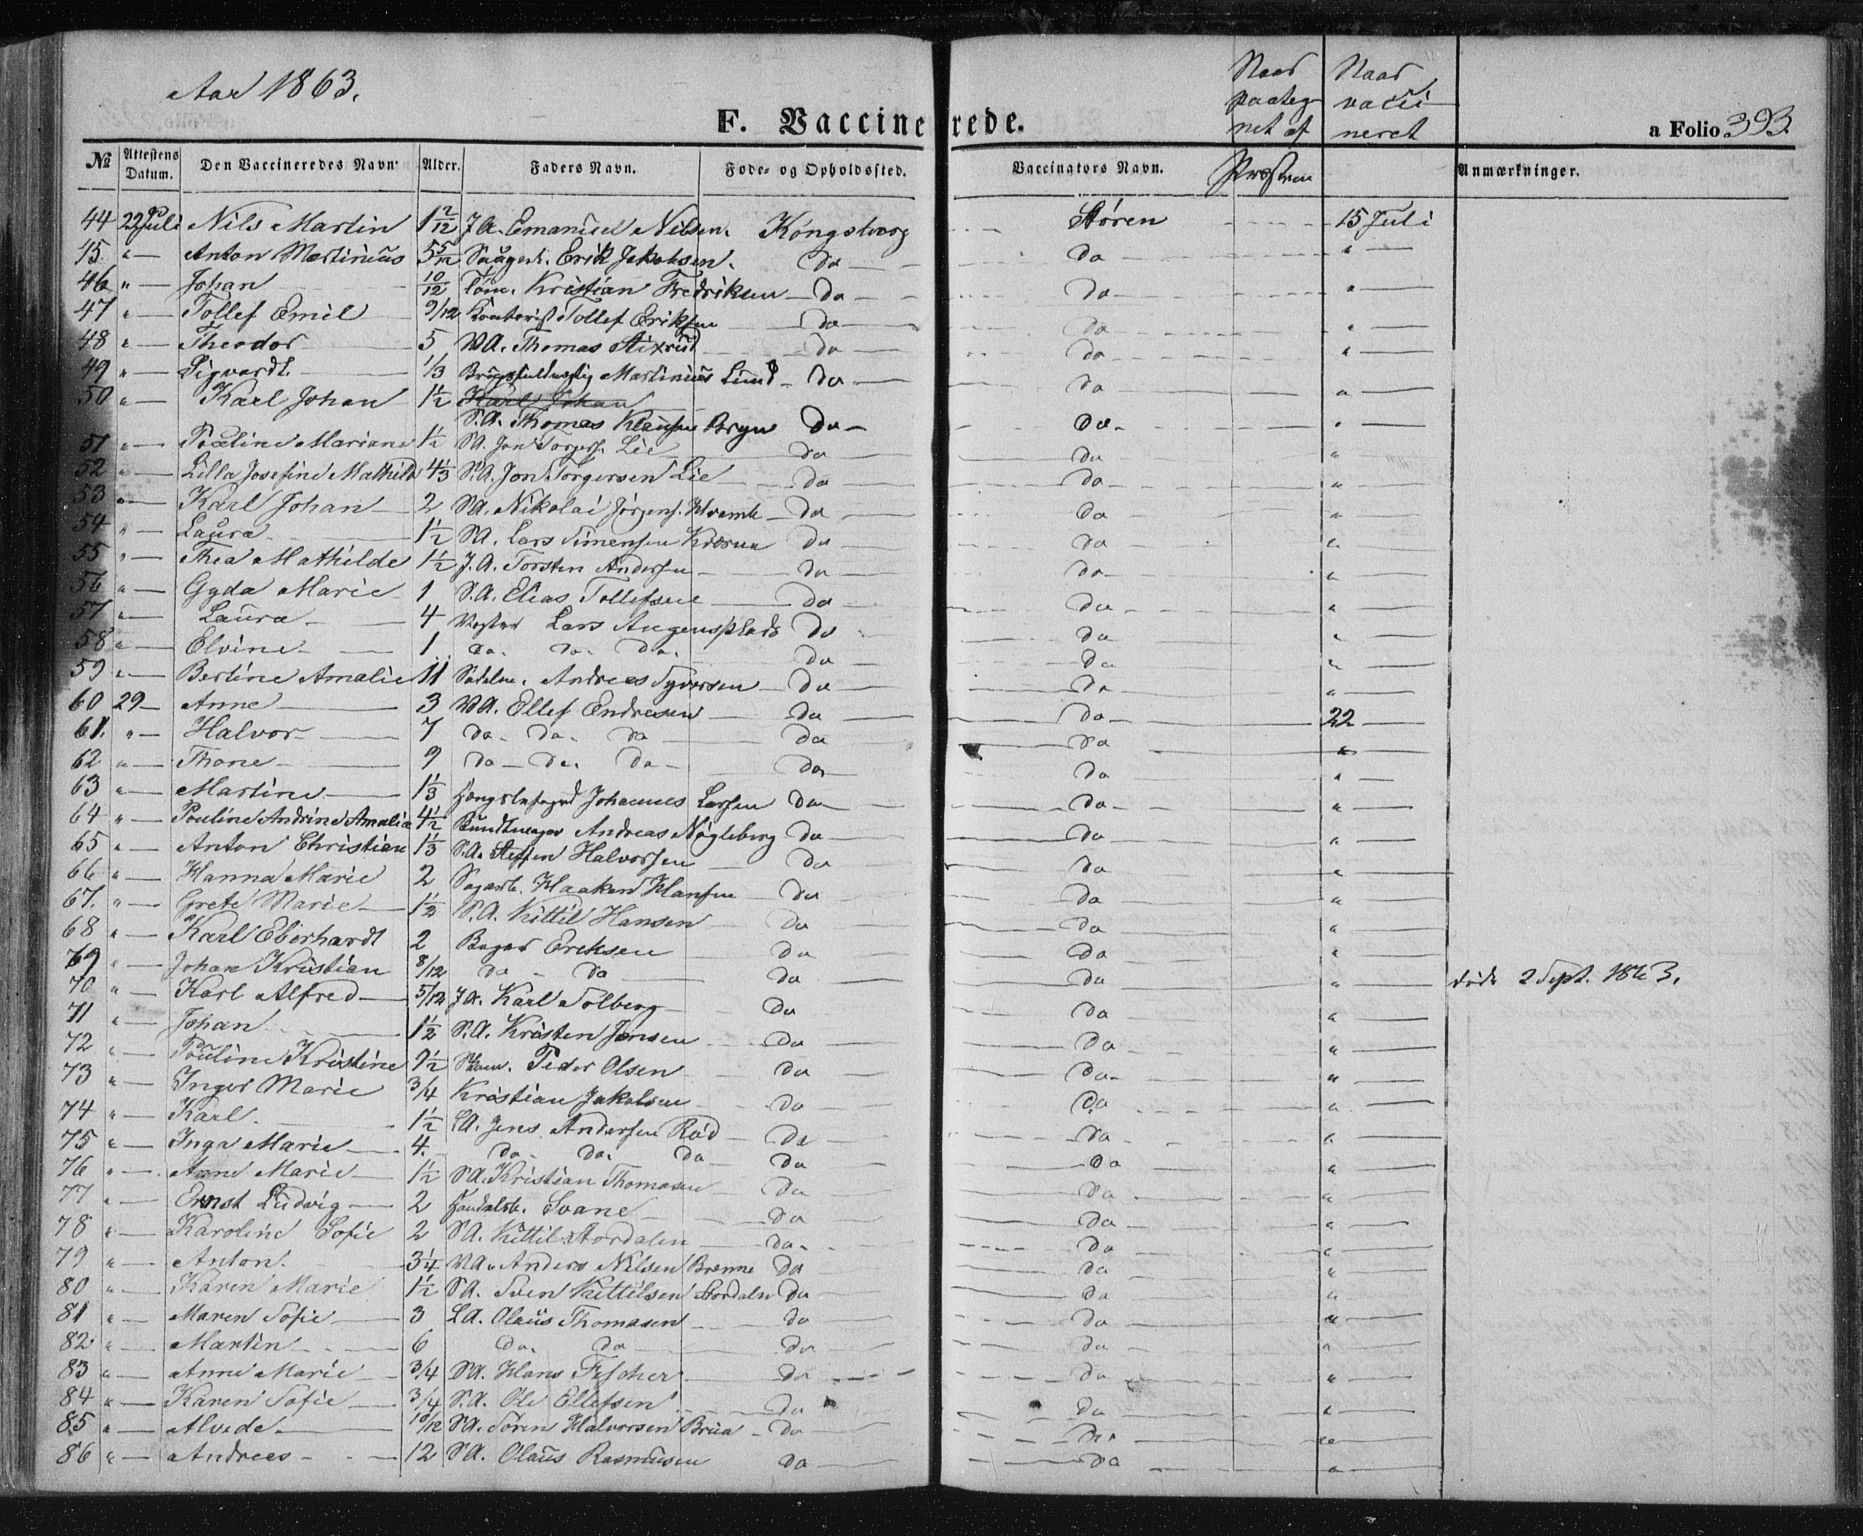 Aar 1863.
F. Vaccinerede.
Naar paategnet af Præsten
Naar vaccineret
a Folio 393.
№ Attestens Datum. Den Vaccineredes Navn Alder. Faders Navn. Føde- og Opholdssted. Vaccinators Navn. Anmærkninger.
44 22 Juli Nils Martin 1 2/12 J.A. Emanuel Nilsen. Kongsberg Støren 15 Juli
45 " Anton Martinius 5 5/12 Erik Jakobsen. do do "
46 " Johan 10/12 Tøm. Kristian Fredriksen do do "
47 " Tollef Emil 9/12 Kontorist Tollef Eriksen do do "
48 " Theodor 5 VA. Thomas Stixrud do do "
49 " Sigvardt. 1/3 Martinius Lund do do "
50 " Karl Johan 1 1/2 Karl Johan
S.A. Thomas Klausen Bryn do do "
51 " Pauline Mariane 1 1/2 SA. Jon Torgers. Lie do do "
52 " Lilla Josefine Mathilde 4 1/3 S.A. Jon Torgersen Lie do do "
53 " Karl Johan 2 SA. Nikolai Jörgens. do do "
54 " Laura 1 1/2 SA. Lars Simensen do do "
55 " Thea Mathilde 1 1/2 J.A. Torsten Andersen do do "
56 " Gyda Marie 1 S.A. Elias Tollefsen do do "
57 " Laura 4 Lars Augensplads do do "
58 " Elvine 1 do. do. do. do do "
59 " Bertine Amalie 11 Sadelm. Andreas Syversen do do "
60 29 Anne 3 VA. Ellef Endresen do do 22
61. " Halvor 7 do do do do do "
62 " Thone 9 do do do do do "
63 " Martine 1 1/3 Johannes Larsen do do "
64 " Pouline Andrine Amalia 4 1/2 Bundtmager Andreas Nøgleberg do do "
65 " Anton Christian 1 1/3 S.A. Steffen Halvorsen do do "
66 " Hanna Marie 2 Sagarb. Haaken Hansen do do "
67. " Grete Marie 1 1/2 S.A. Kittil Hansen do do "
68 " Karl Eberhardt 2 Bager Ereksen do do "
69 " Johan Kristian 8/12 do do do do " døde 2 Sept. 1863.
70 " Karl Alfred 5/12 JA. Karl Solberg do do "
71 " Johan 1 1/2 S.A. Kristen Jensen do do "
72 " Pouline Kristine 9 1/2 Peder Olsen do do "
73 " Inger Marie 3/4 Kristian Jakobsen do do "
74 " Karl. 1 1/2 SA. Jens Andersen Rød do do "
75 " Inga Marie 4. do. do. do do do "
76 " Anne Marie 1 1/2 SA. Kristian Thomasen do do "
77 " Ernst Ludvig 2 Handelsb. Svane do do "
78 " Karoline Sofie 2 SA. Kittil Stordalen do do "
79 " Anton. 3 1/4 VA. Anders Nilsen Brenne do do "
80 " Karen Marie 1 1/2 SA. Sven Kittilsen Stordalen do do "
81 " Maren Sofie 3 LA. Olaus Thomasen do do "
82 " Martin 6 do. do do do "
83 " Anne Marie 3/4 SA. Hans Fischer do do "
84 " Karen Sofie 3/4 S.A. Ole Ellefsen do do "
85 " Alvede 10/12 SA. Søren Halvorsen Brua do do "
86 " Andreas 12 SA. Olaus Rasmusen do do "